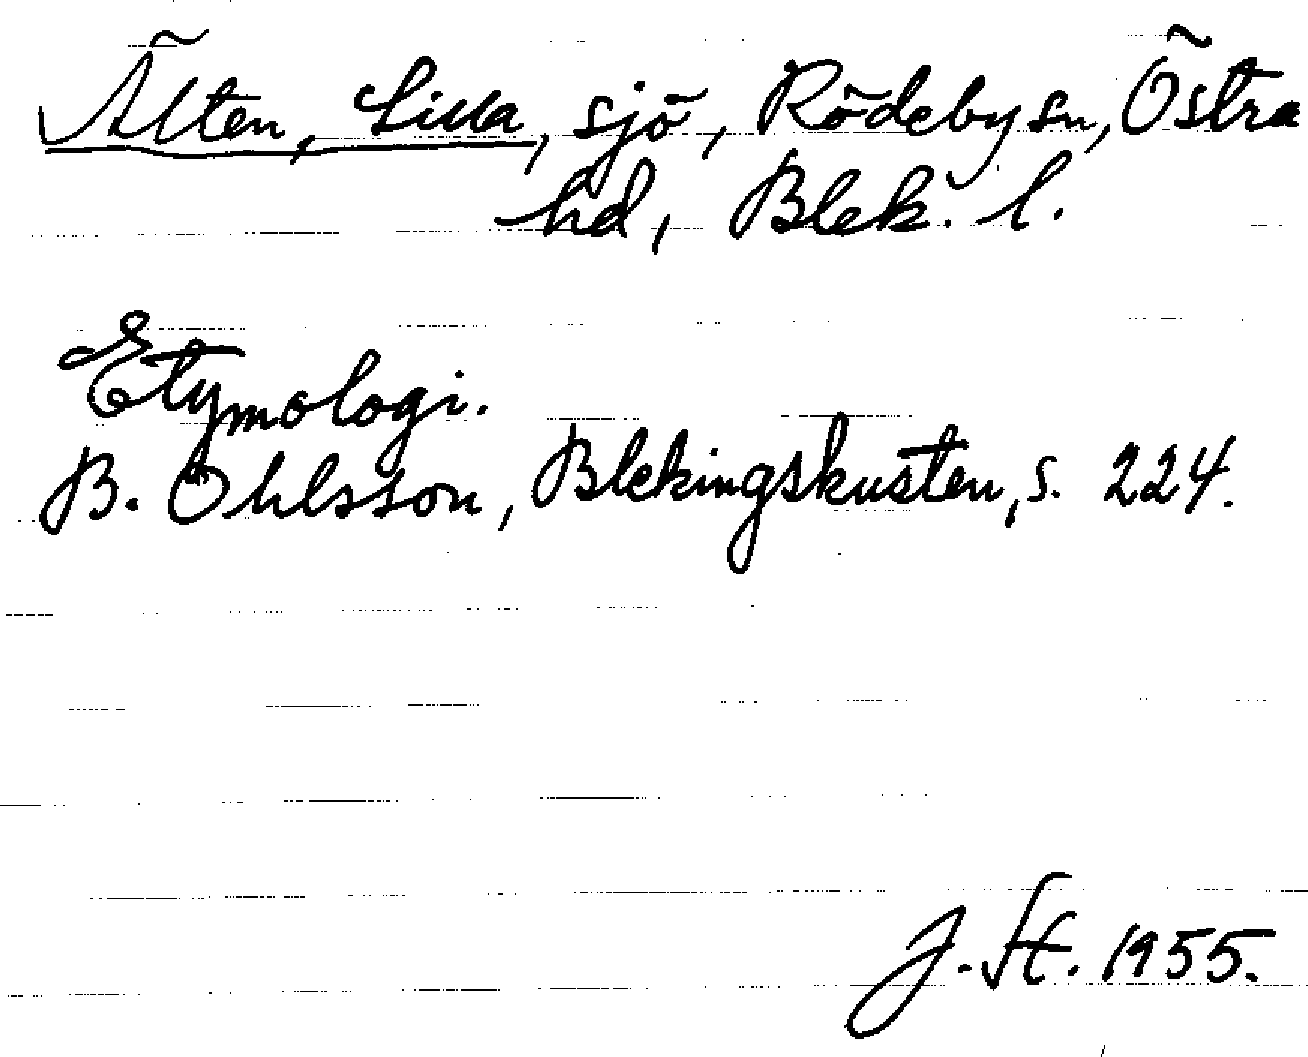 Älten, Lilla, sjö, Rödeby sn, Östra
hd, Blek. l.
Etymologi.
B. Ohlsson, Blekingskusten, s. 224.
J. St. 1955.